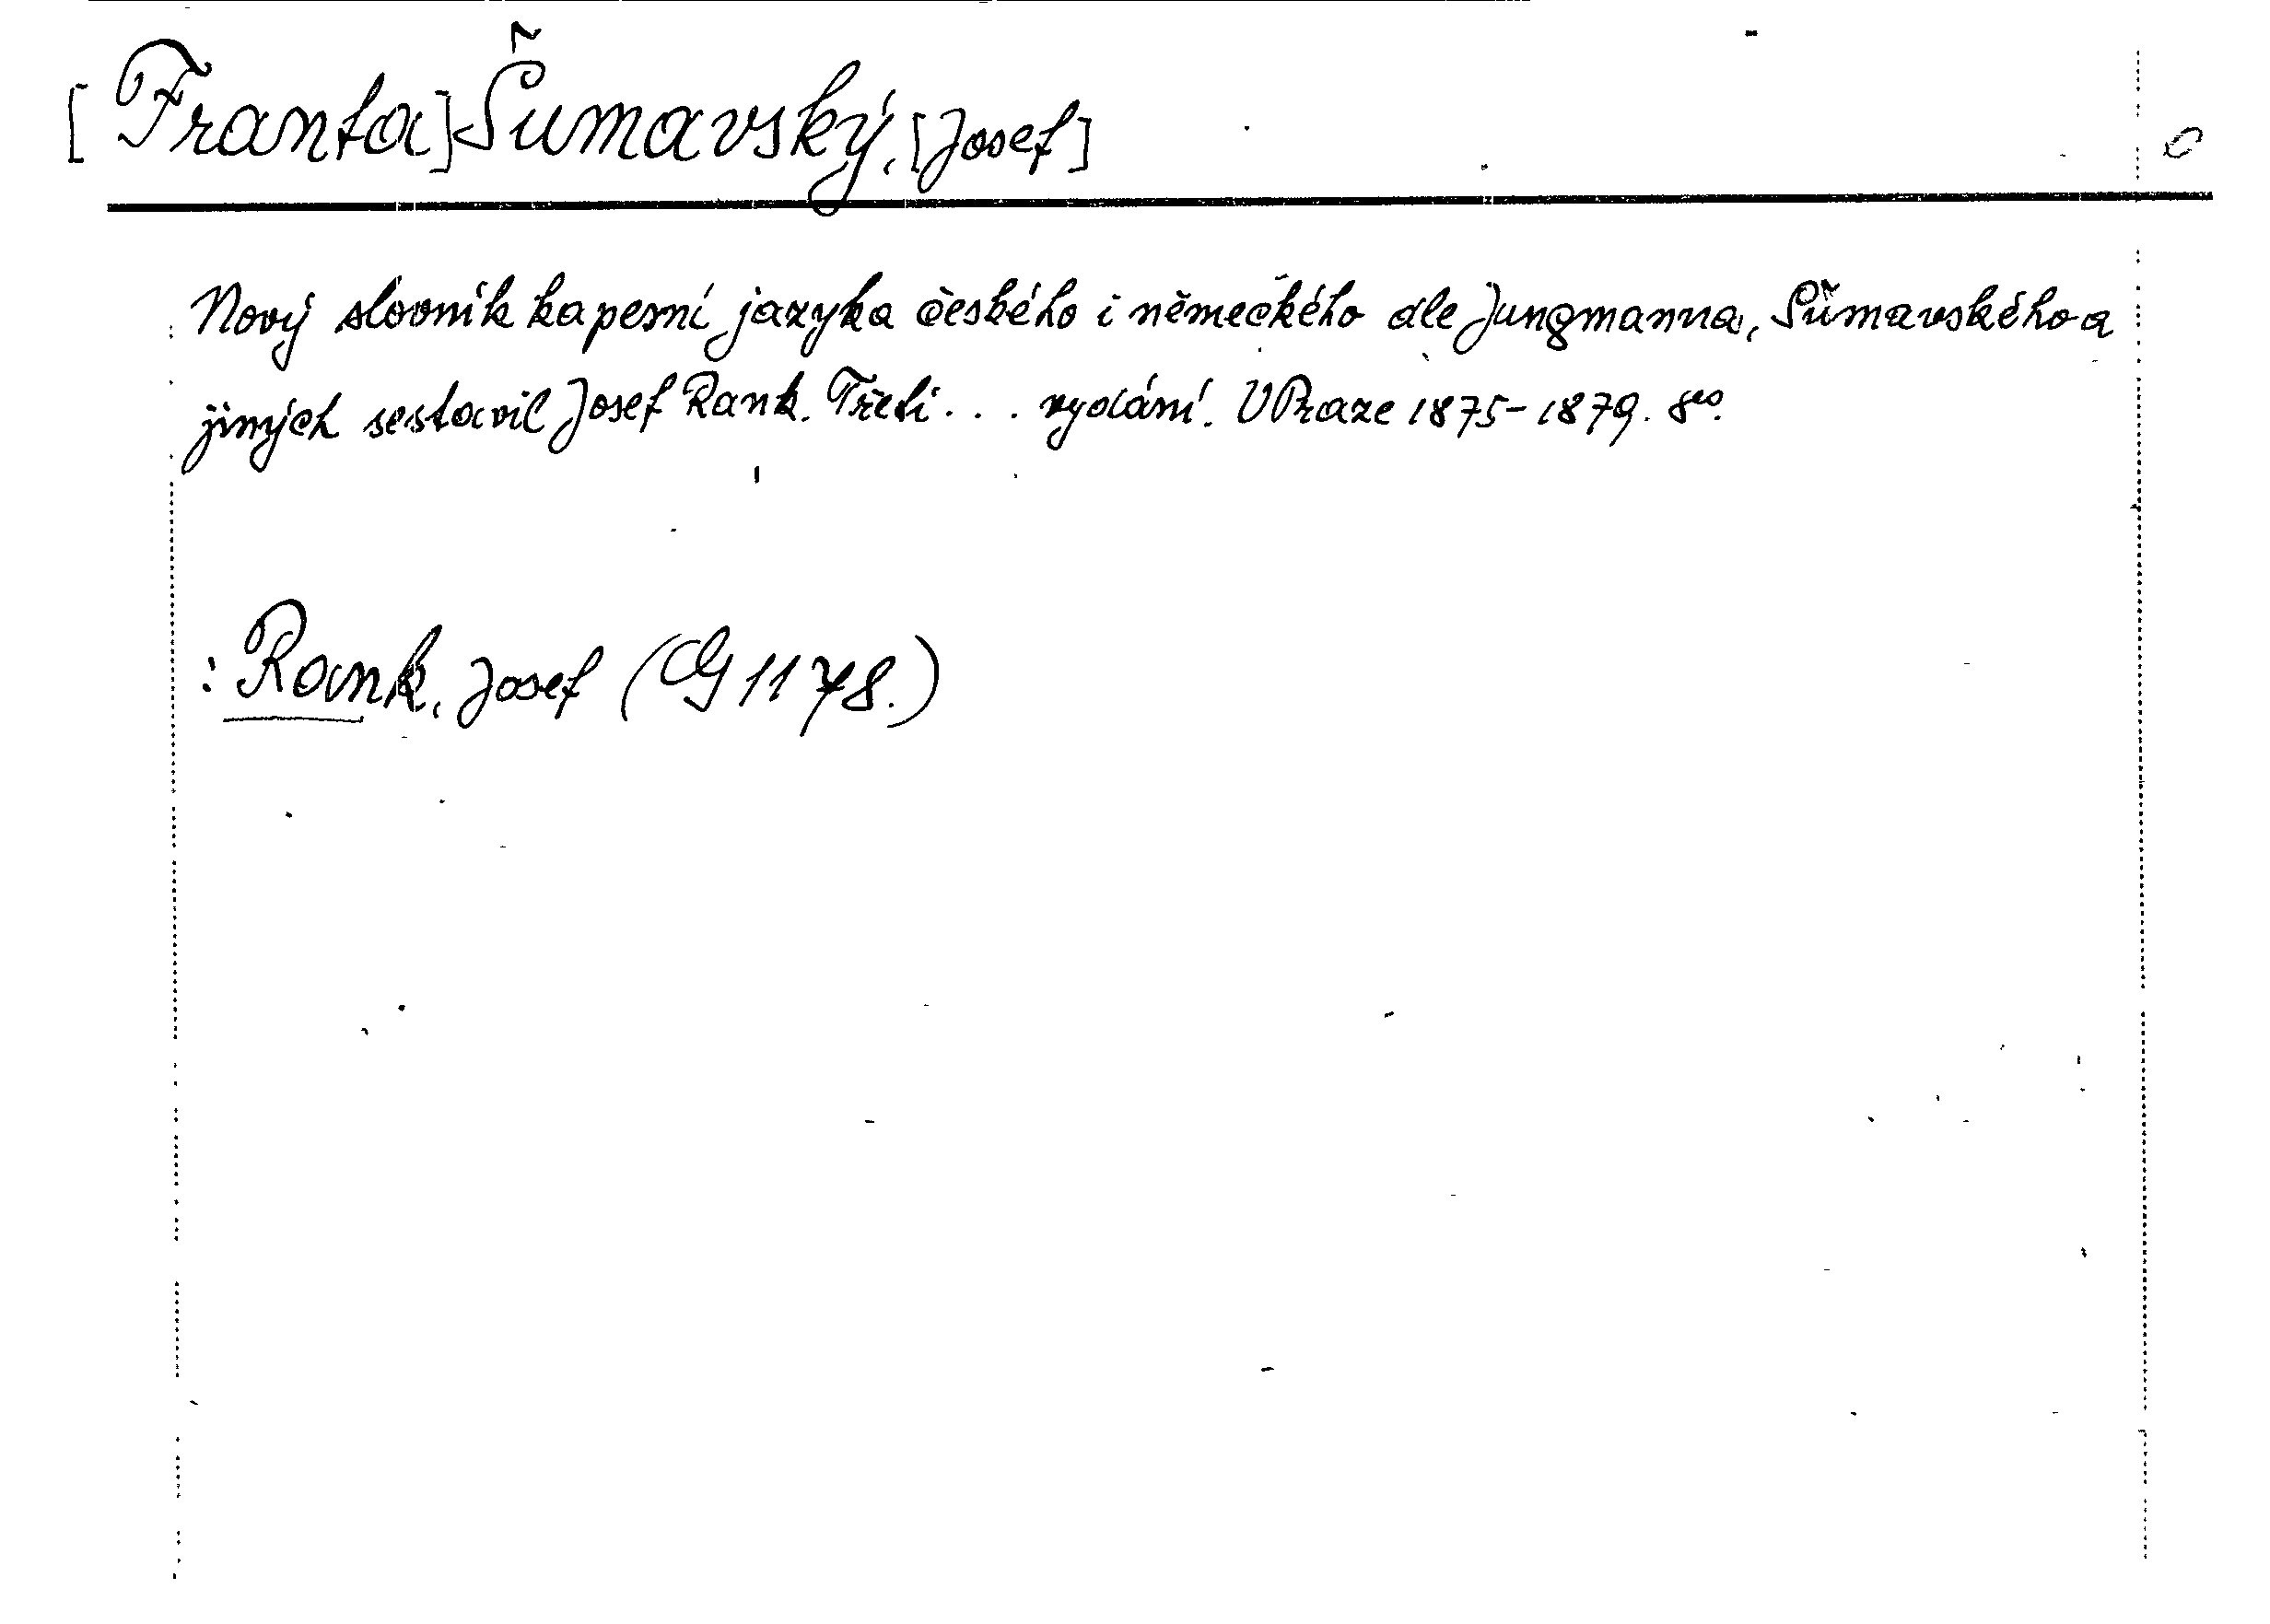 [Franta] Šumavský, [Josef]
Nový slovník kapesní jazyka českého i německého dle Jungmanna, Šumavského a
jiných sestavil Josef Rank. Třetí . . . vydání. V Praze 1875-1879. 8⁰.
: Rank, Josef (G 1178.)